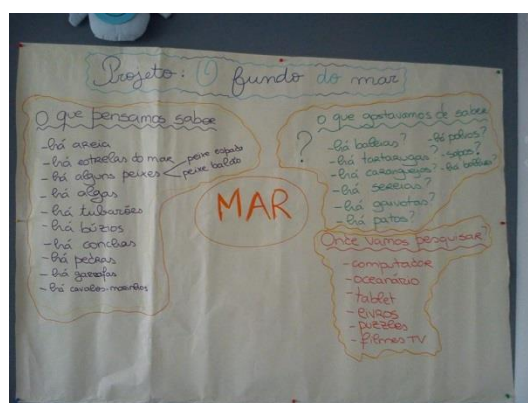 Projeto: O fundo do mar
O que pensamos saber
- há areia
- há estrelas do mar
- há alguns peixes
peixe espada
peixe balão
- há algas
- há tubarões
- há búzios
- há conchas
- há pedras
- há garrafas
- há cavalos-marinhos
MAR
?
O que gostavamos de saber
- há baleias?
- há tartarugas?
- há caranguejos?
- há sereias?
- há gaivotas?
- há patos?
- há polvos?
- sapos?
Onde vamos pesquisar?
- computador
- oceanário
- tablet
- livros
- puzzles
- filmes TV